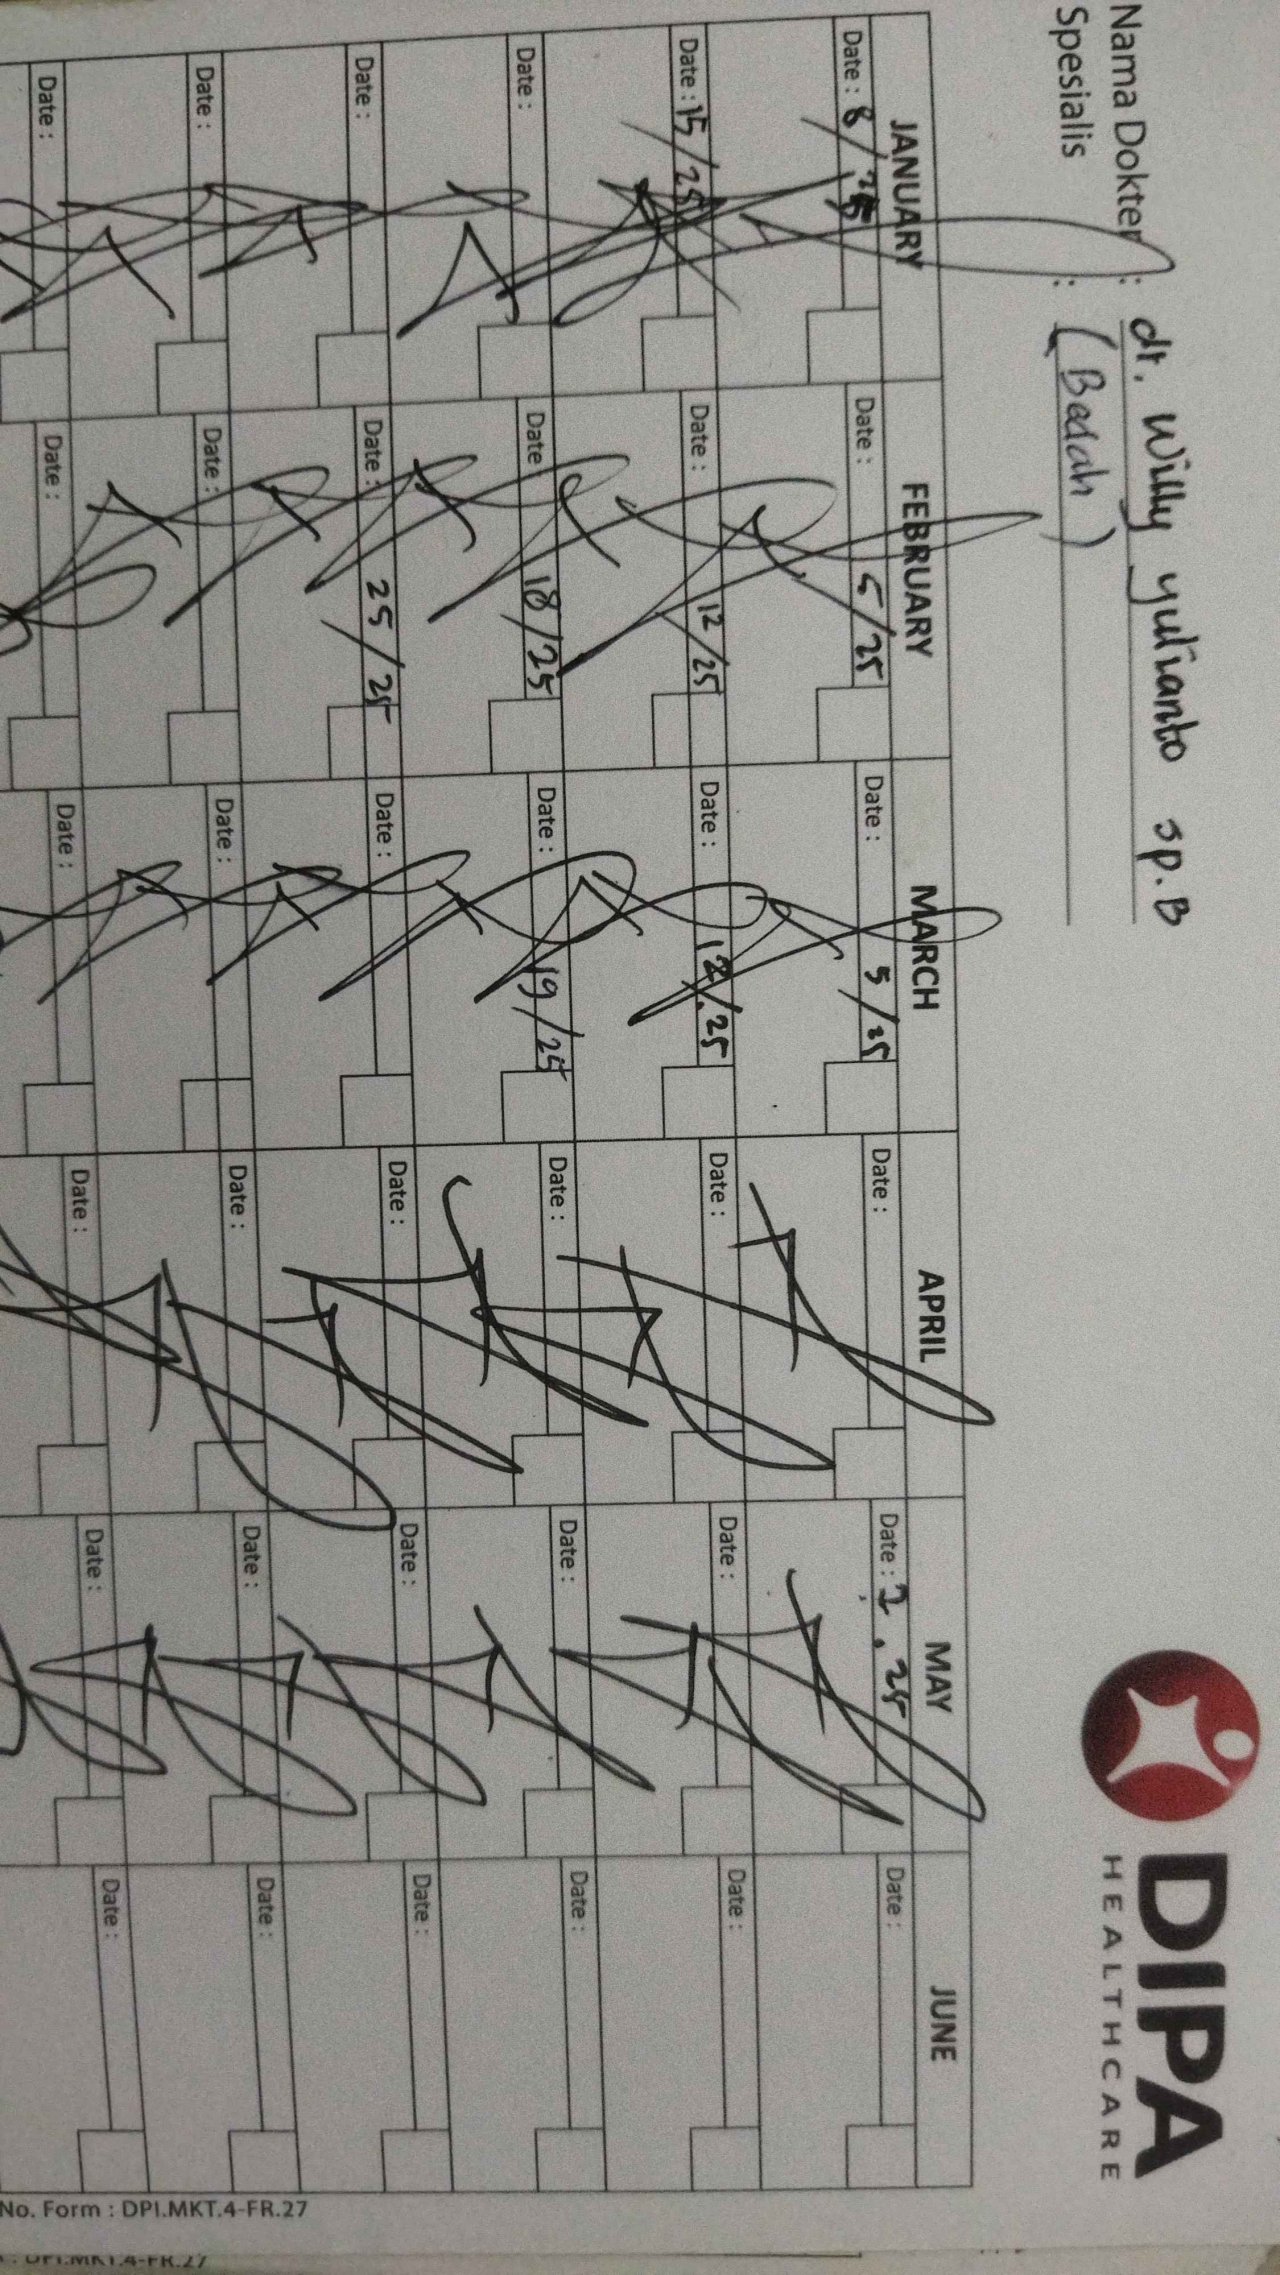 Nama Dokter : dr. Willy yulianto sp.B
Spesialis : (Bedah)
DIPA
HEALTHCARE
JANUARY FEBRUARY MARCH APRIL MAY JUNE
Date : 8/25 Date : 5/25 Date : 5/25 Date : Date : 2.25 Date :
Date : 15/25 Date : 12/25 Date : 12/.25 Date : Date : Date :
Date : Date : 18/25 Date : 19/25 Date : Date : Date :
Date : Date : 25/25 Date : Date : Date : Date :
Date : Date : Date : Date : Date : Date :
Date : Date : Date : Date : Date : Date :
No. Form : DPI.MKT.4-FR.27
: DPI.MKT.4-FR.27